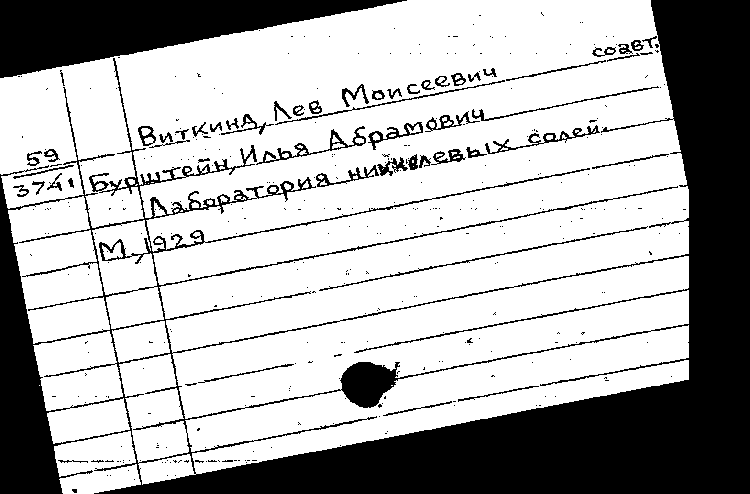 соавт.
Виткинд, Лев Моисеевич
59
3741
Бурштейн, Илья Абрамович
Лаборатория никкелевых солей.
М., 1929